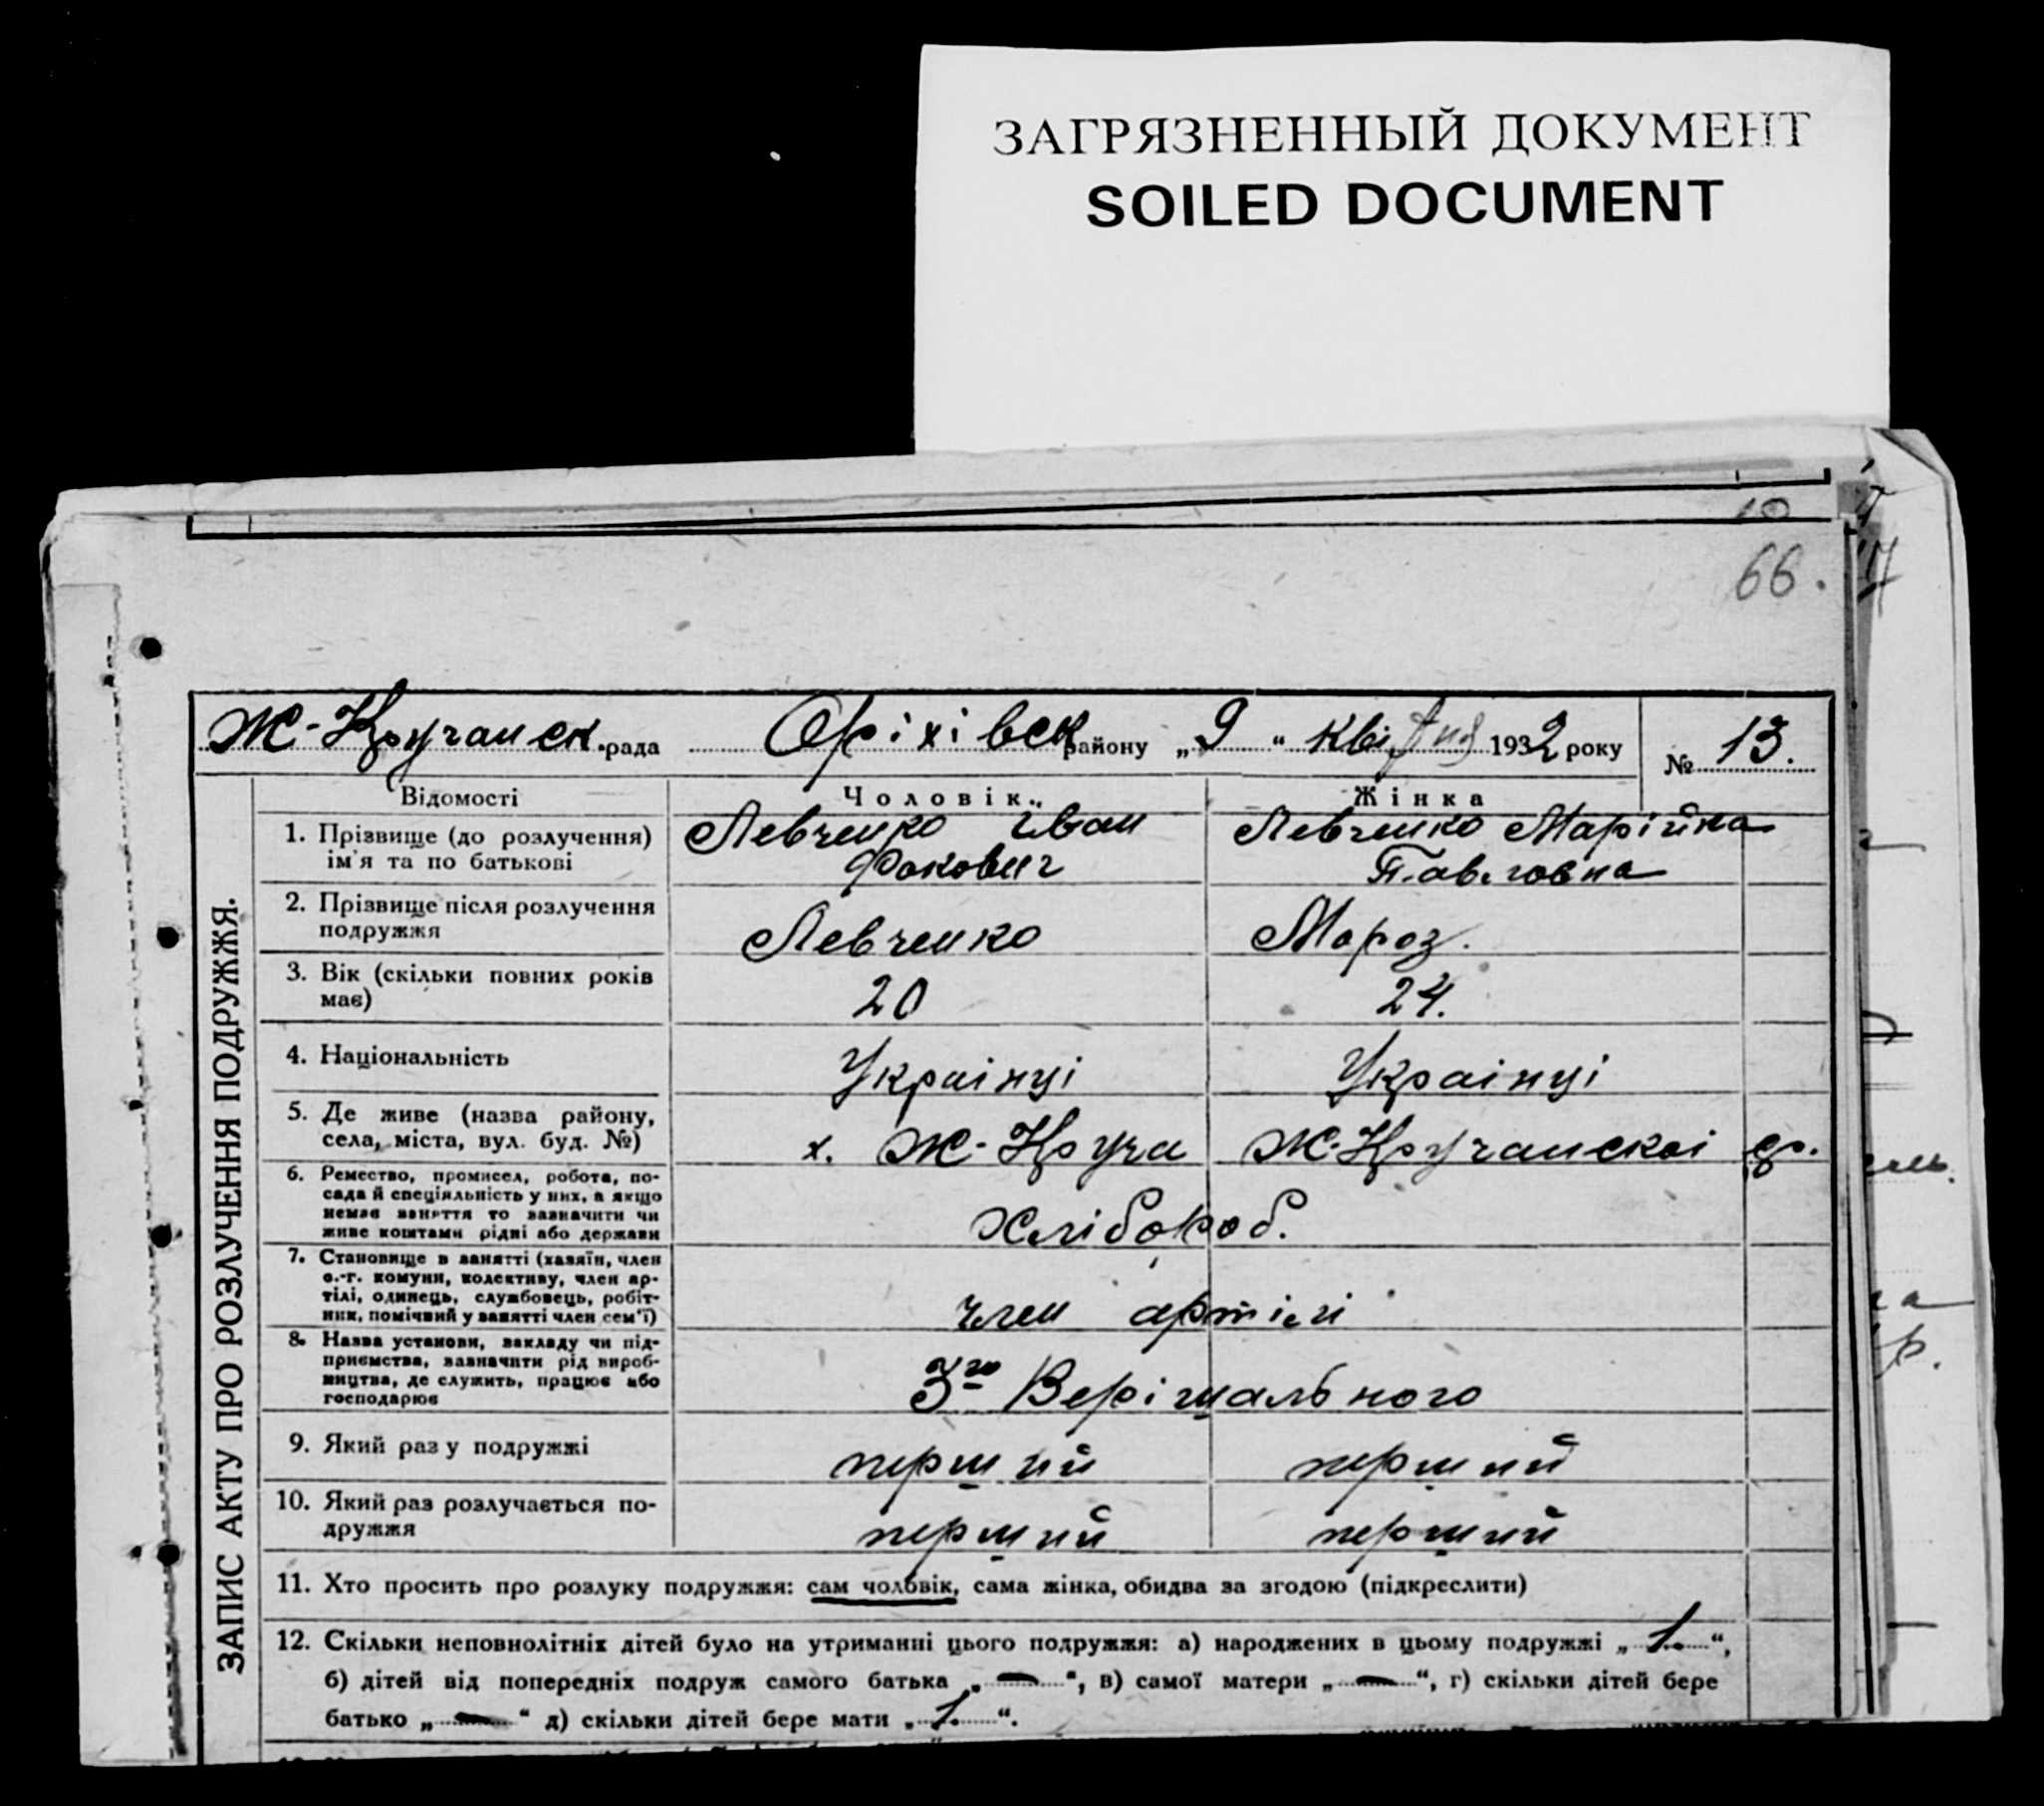 ЗАГРЯЗНЕННЫЙ ДОКУМЕНТ
SOILED DOCUMENT
66.
Ж-Кручанск. рада Оріхівск району „9“ квітня 1932 року № 13.
ЗАПИС АКТУ ПРО РОЗЛУЧЕННЯ ПОДРУЖЖЯ.
Відомості Чоловік Жінка
1. Прізвище (до розлучення) Левченко Іван Левченко Марійка
ім'я та по батькові Фокович Павловна
2. Прізвище після розлучення
подружжя Левченко Мороз.
3. Вік (скільки повних років
має) 20 24.
4. Національність Українці Українці
5. Де живе (назва району,
села, міста, вул. буд. №) х. Ж-Круча Ж-Кручанскоі ср.
6. Ремество, промисел, робота, по-
сада й спеціяльність у них, а якщо
немає заняття то зазначити чи Хлібороб.
живе коштами рідні або держави
7. Становище в занятті (хазяїн, член
с.-г. комуни, колективу, член ар-
тілі, одинець, службовець, робіт- член артілі
ник, помічний у занятті член сем'ї)
8. Назва установи, закладу чи під-
приємства, зазначити рід вироб-
ництва, де служить, працює або 3го Верішального
господарює
9. Який раз у подружжі перший перший
10. Який раз розлучається по-
дружжя перший перший
11. Хто просить про розлуку подружжя: сам чоловік, сама жінка, обидва за згодою (підкреслити)
12. Скільки неповнолітніх дітей було на утриманні цього подружжя: а) народжених в цьому подружжі „1.“,
б) дітей від попередніх подруж самого батька „—“, в) самої матери „—“, г) скільки дітей бере
батько „—“ д) скільки дітей бере мати „1.“.